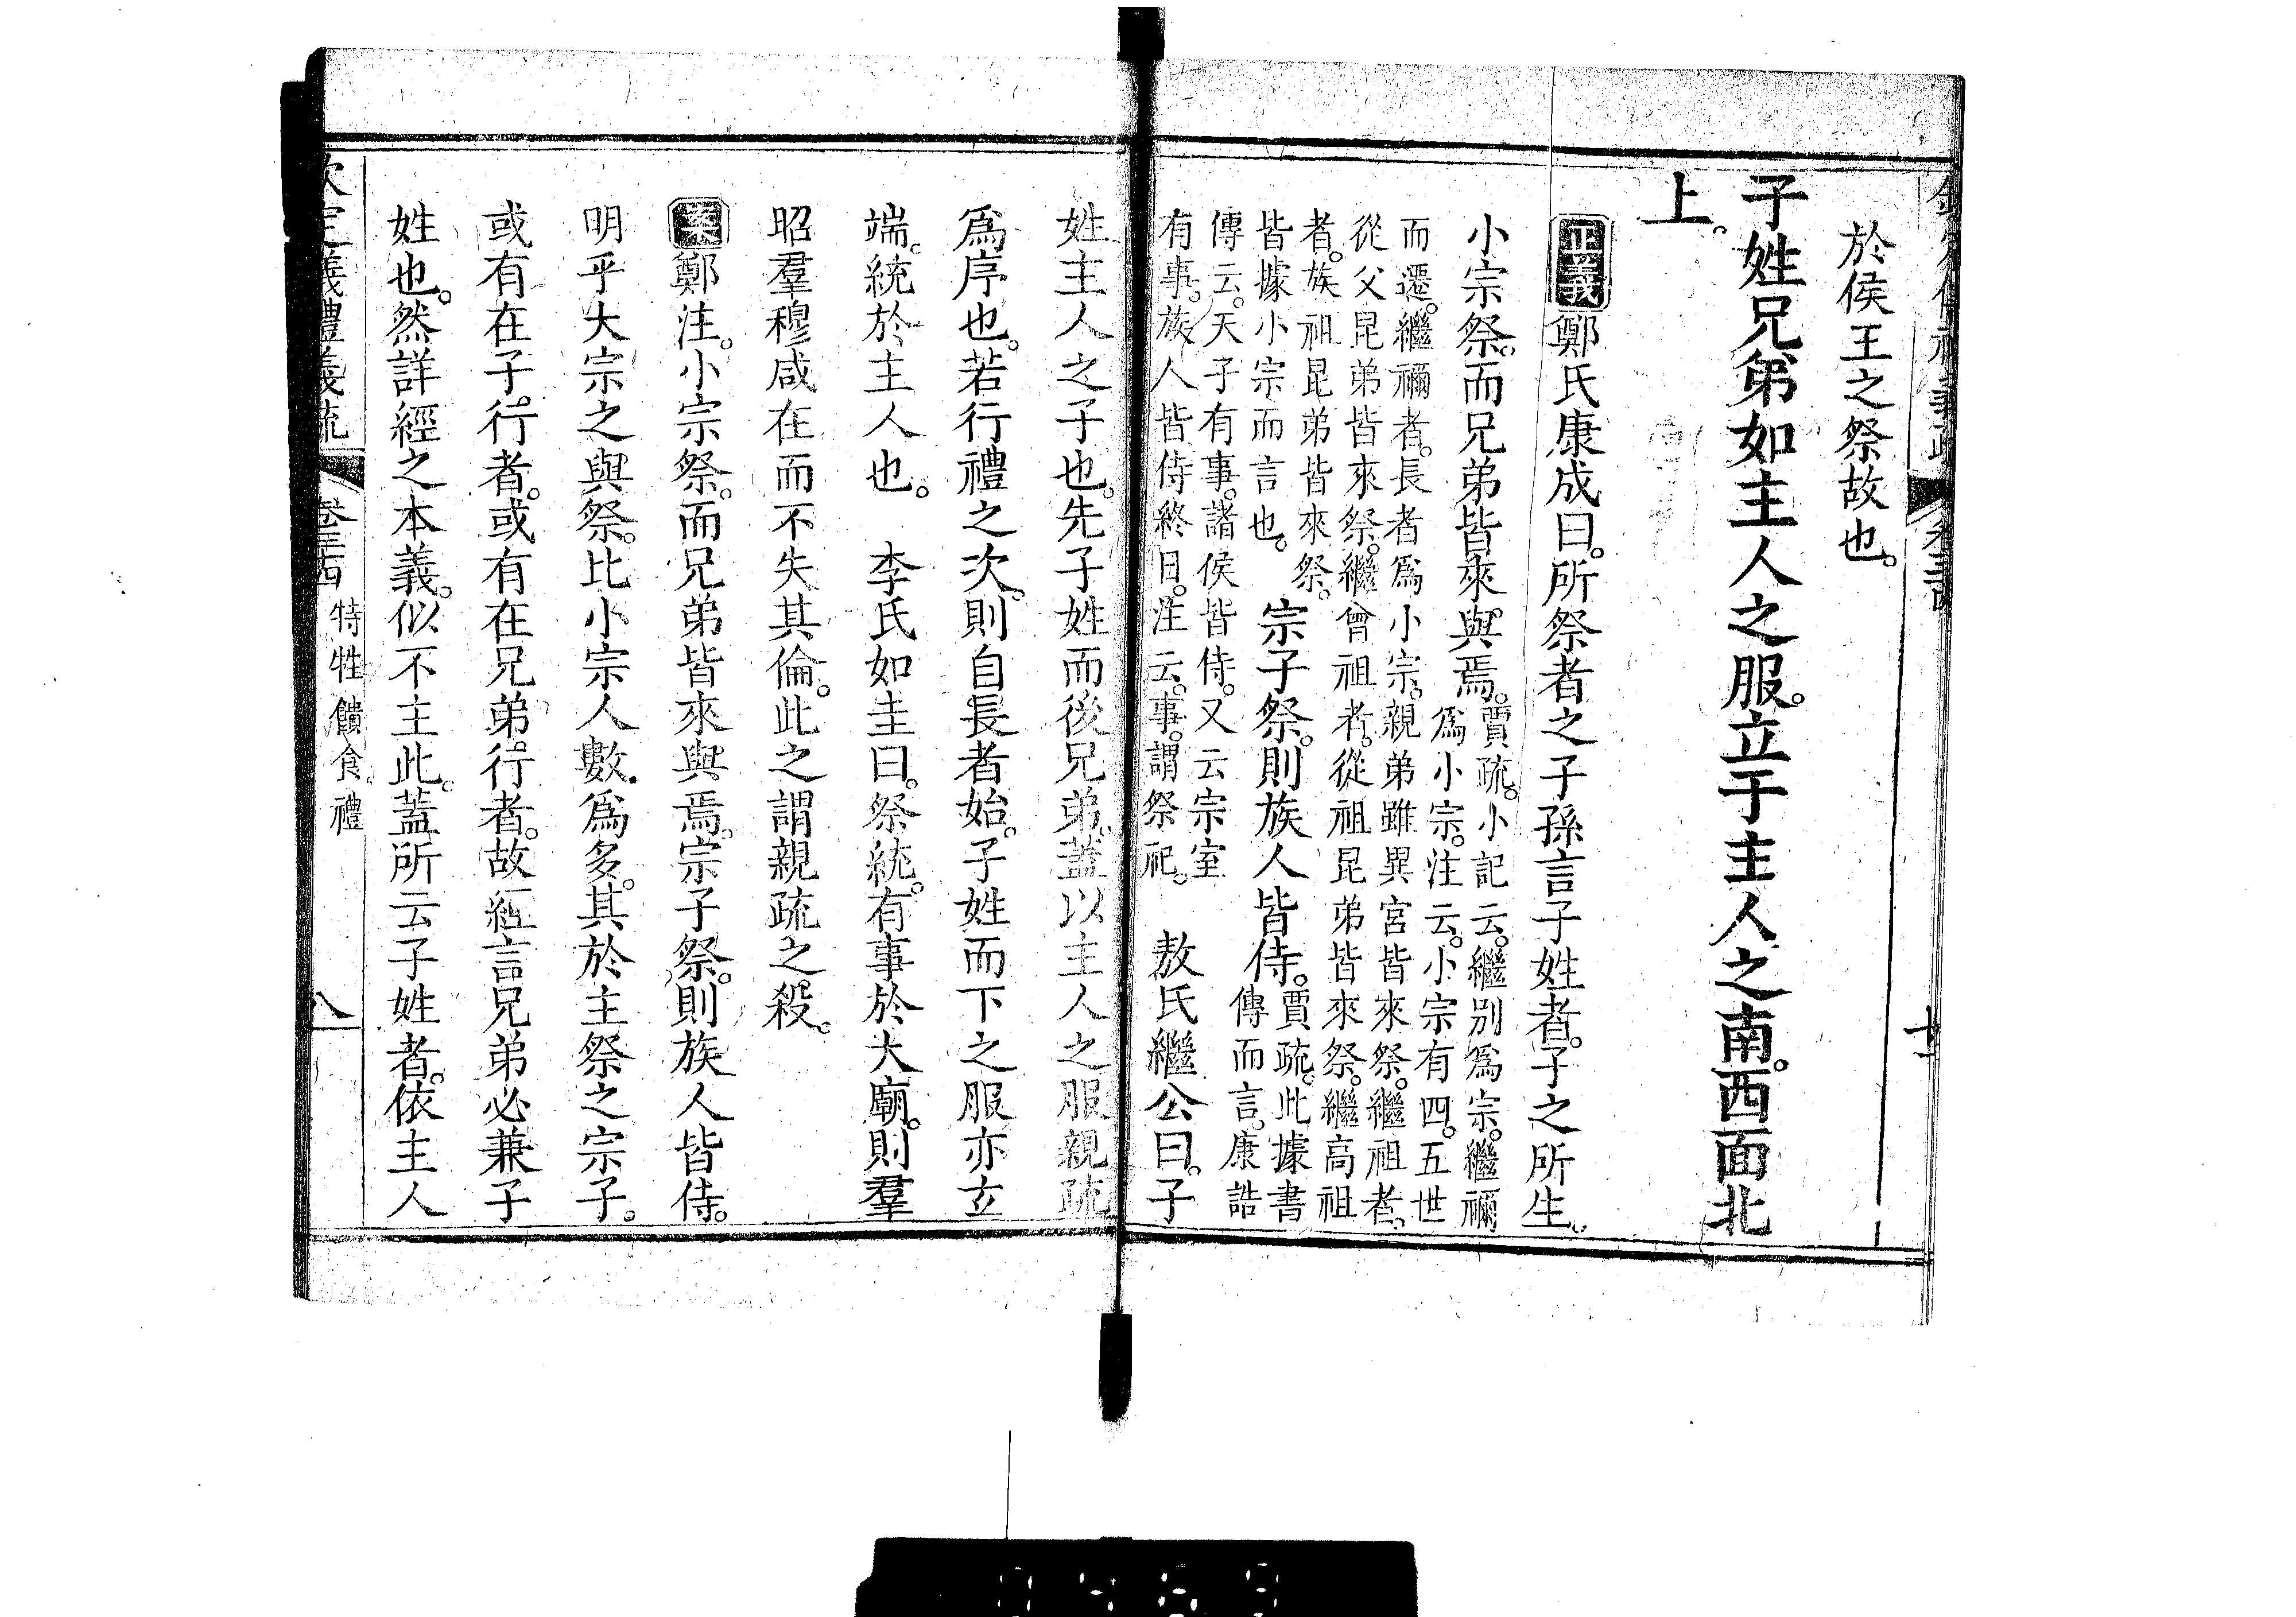 於侯王之祭故也。
子姓兄弟如主人之服。立于主人之南。西面北
上。
正義鄭氏康成曰。所祭者之子孫言子姓者。子之所生。
小宗祭。而兄弟皆來與焉。賈疏。小記云。繼別爲宗。繼禰
爲小宗。注云。小宗有四。五世
而遷。繼禰者。長者爲小宗。親弟雖異宮皆來祭。繼祖者。
從父昆弟皆來祭。繼曾祖者。從祖昆弟皆來祭。繼高祖
者。族祖昆弟皆來祭。
皆據小宗而言也。宗子祭。則族人皆侍。賈疏。此據書
傳而言。康誥
傳云。天子有事。諸侯皆侍。又云宗室
有事。族人皆侍終日。注云。事。謂祭祀。敖氏繼公曰。子
姓主人之子也。先子姓而後兄弟。蓋以主人之服親疏
爲序也。若行禮之次。則自長者始。子姓而下之服亦玄
端。統於主人也。 李氏如圭曰。祭統。有事於大廟。則羣
昭羣穆咸在而不失其倫。此之謂親疏之殺。
案鄭注。小宗祭。而兄弟皆來與焉。宗子祭。則族人皆侍。
明乎大宗之與祭。比小宗人數爲多。其於主祭之宗子。
或有在子行者。或有在兄弟行者。故經言兄弟必兼子
姓也。然詳經之本義。似不主此。蓋所云子姓者。依主人
定義禮義疏 卷三十四 特牲饋食禮 八